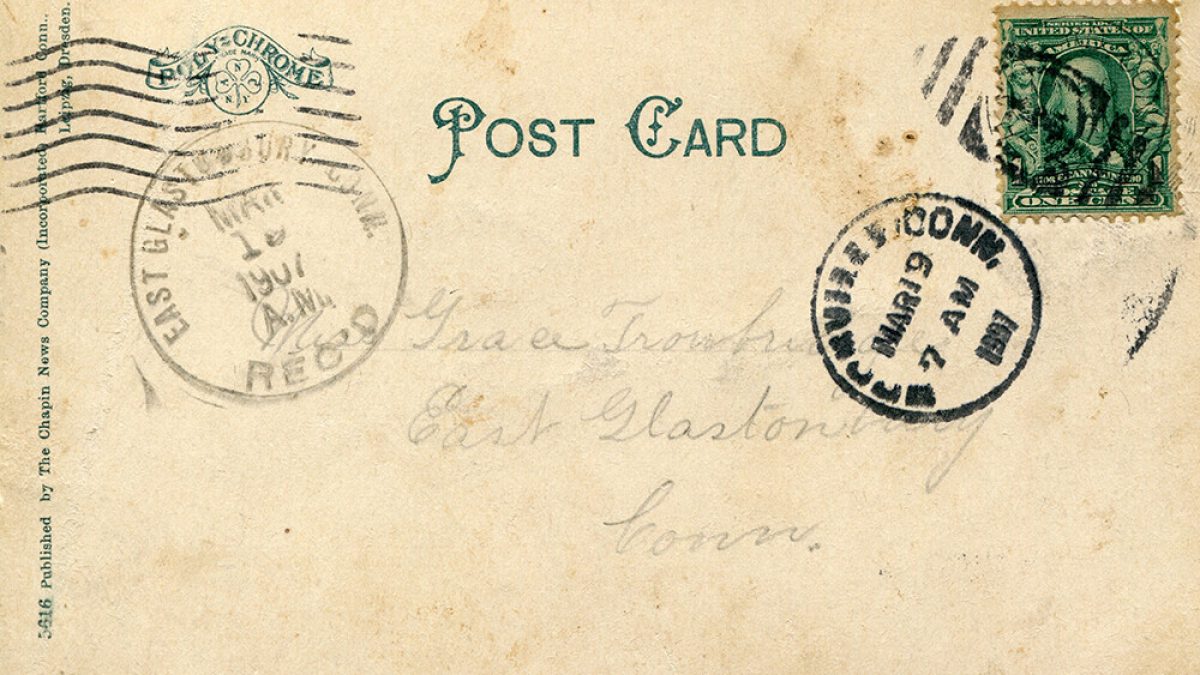 5616 Published by The Chapin News Company (Incorporated) Hartford Conn.,
Leipzig, Dresden.
POLY-CHROME
TRADE MARK
POST CARD
SERIES 1902
UNITED STATES OF
AMERICA
ONE CENT
EAST GLASTONBURY CONN.
MAR
1907
A.M.
REC'D
CONN.
MAR 19
7 AM
1907
Miss Grace Trowbridge
East Glastonbury
Conn.